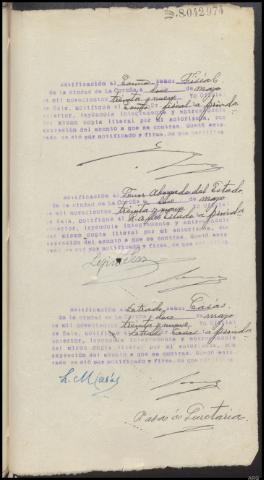 S.8042974
Notificación al Excmo. señor Fiscal
En la ciudad de La Coruña a dos de mayo
de mil novecientos treinta y nueve Yo Oficial
de Sala, notifiqué al Excmo. Fiscal la providencia
anterior, leyéndole íntegramente y entregándole
del mismo copia literal por mí autorizada, con
expresión del asunto a que se contrae. Quedó ente-
rado en sí por notificado y firma, de que certifico
Notificación al Señor Abogado del Estado
En la ciudad de La Coruña a dos de mayo
de mil novecientos treinta y nueve Yo Oficial
de Sala, notifiqué al Abog. Estado la providencia
anterior, leyéndole íntegramente y entregándole
del mismo copia literal por mí autorizada, con
expresión del asunto a que se contrae. Quedó ente-
rado en sí por notificado y firma, de que certifico
Notificación al Letrado señor Casás
En la ciudad de La Coruña a dos de mayo
de mil novecientos treinta y nueve Yo Oficial
de Sala, notifiqué al Letrado Casás la providencia
anterior, leyéndole íntegramente y entregándole
del mismo copia literal por mí autorizada, con
expresión del asunto a que se contrae. Quedó ente-
rado en sí por notificado y firma, de que certifico
Pasa a Secretaría.